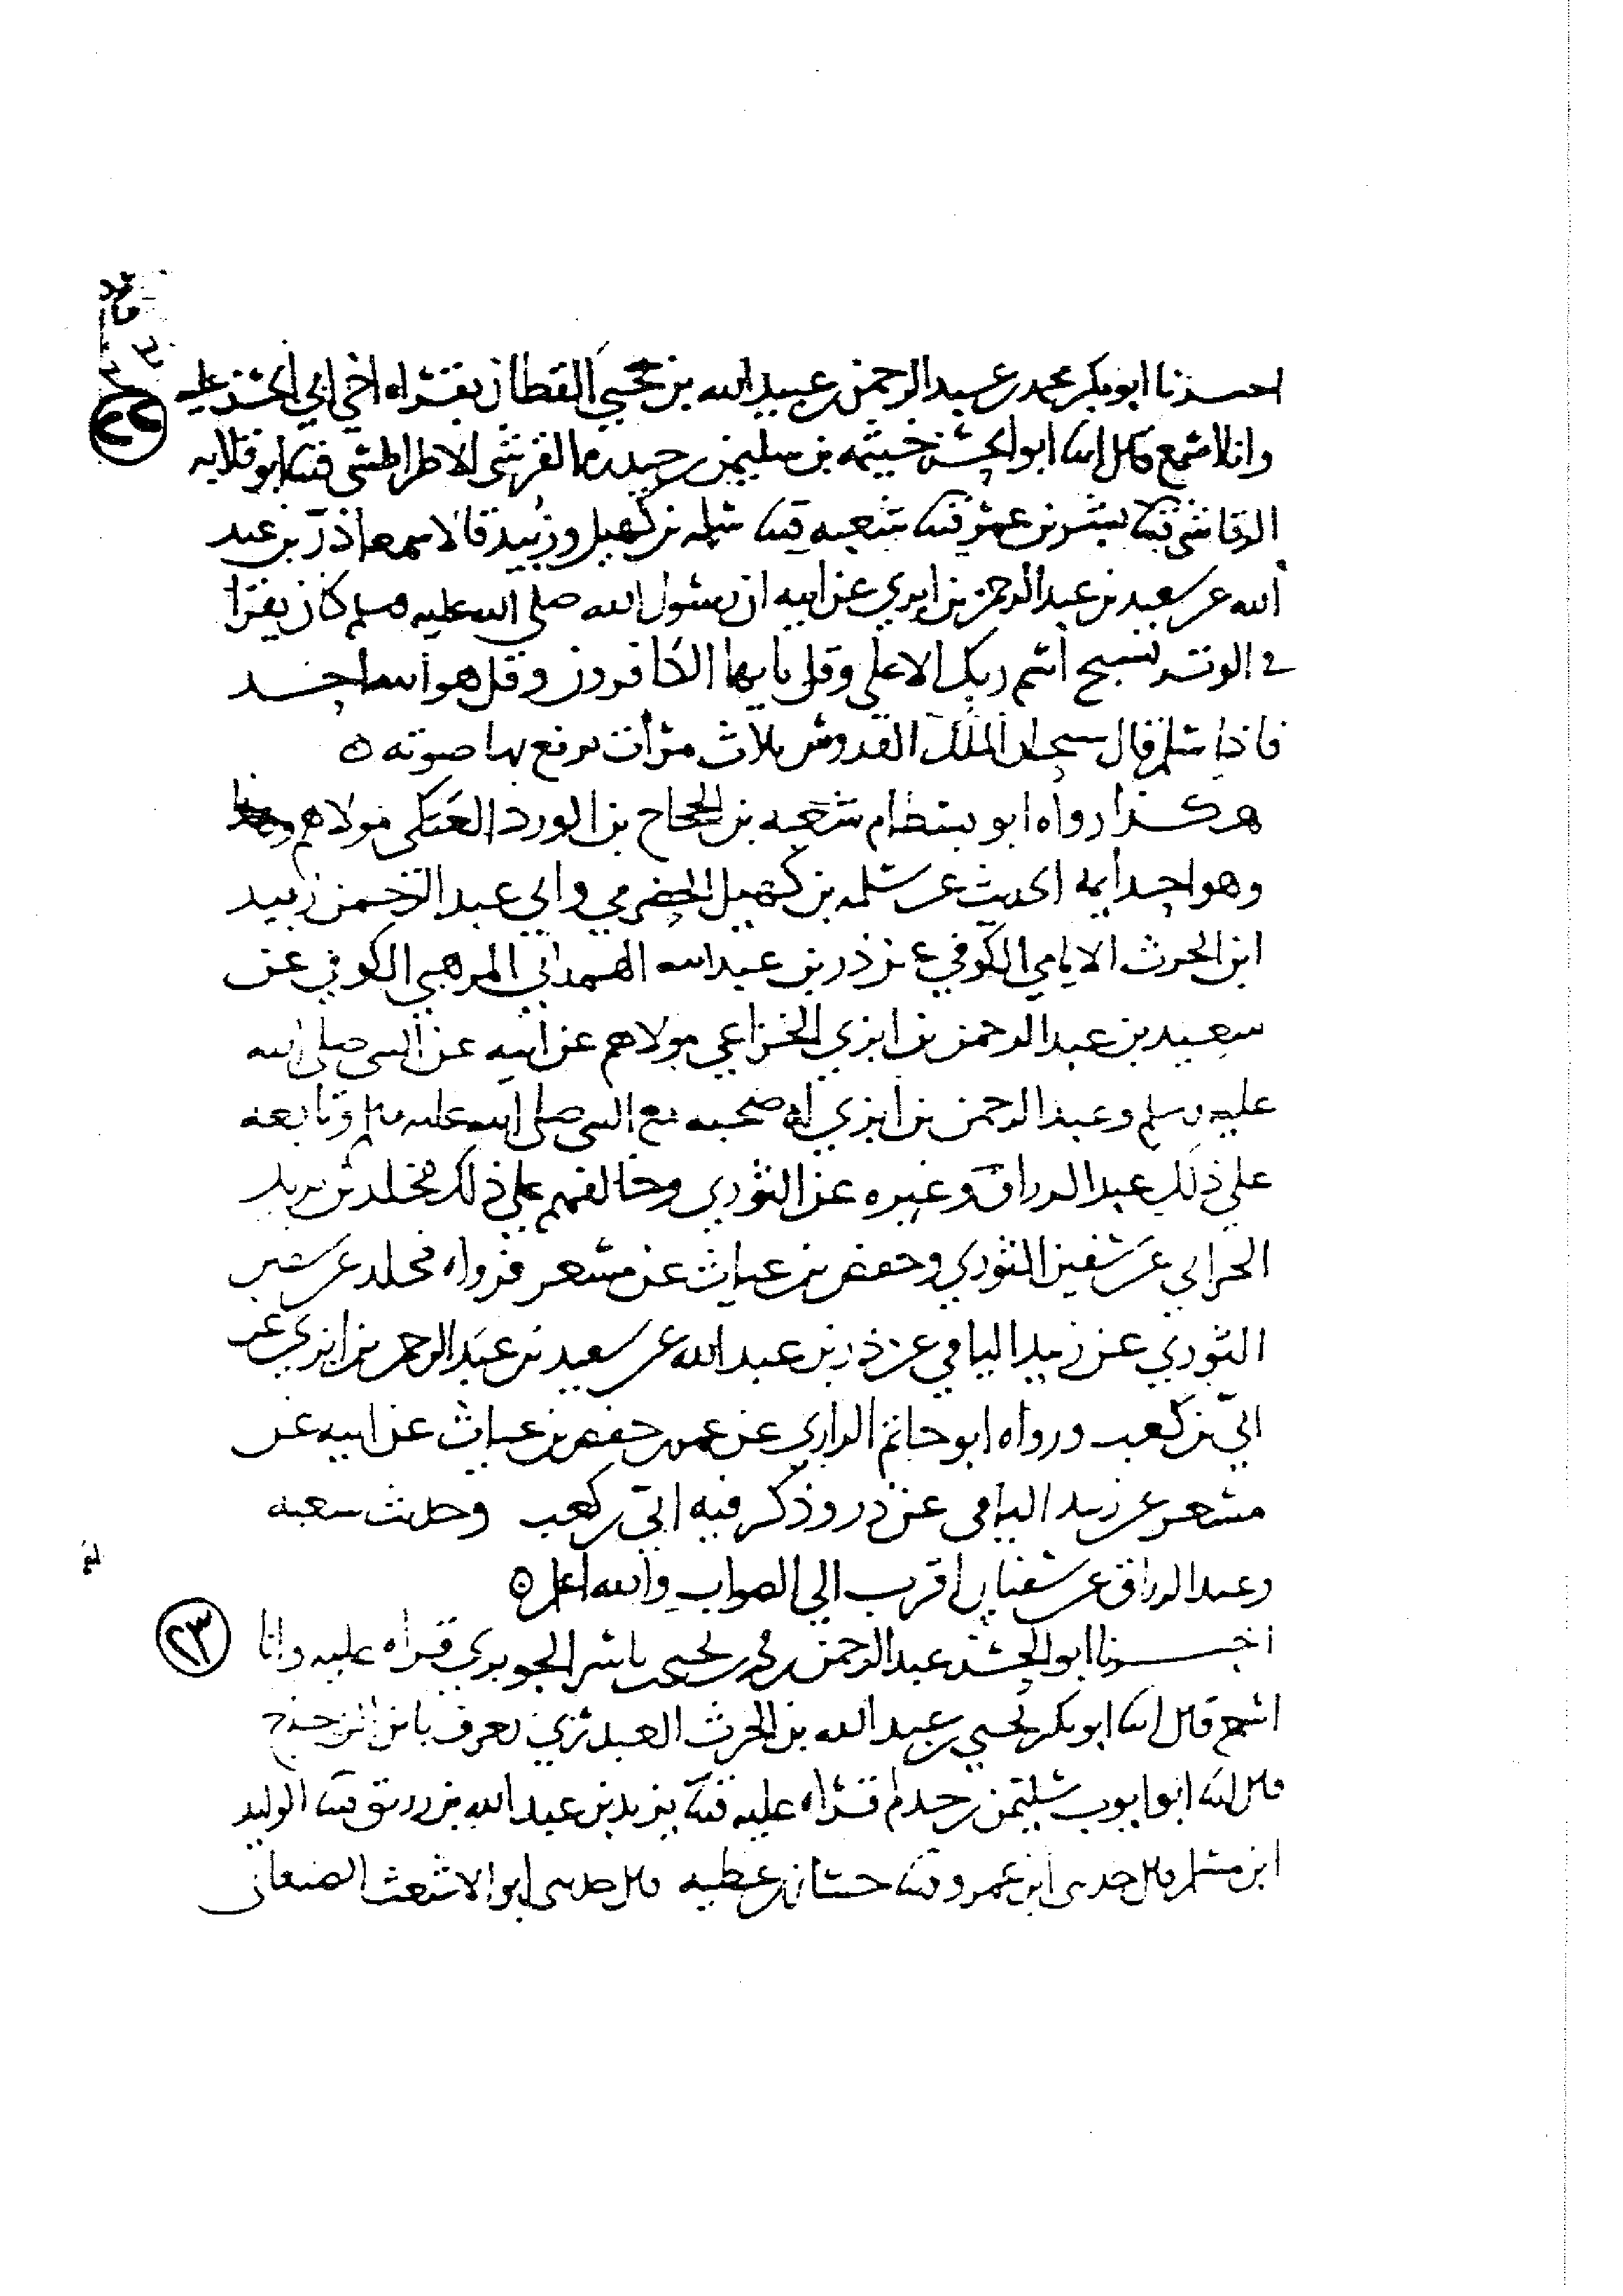 اخبرنا ابو بكر محمد بن عبد الرحمن بن عبيد الله بن يحيى القطان بقراه اخي ابي الحسن عليه
وانا اسمع قال انا ابو الحسن خيثمه بن سليمن بن حيدره القرشي الاطرابلسي ثنا ابو قلابه
الرقاشي ثنا بشر بن عمر ثنا شعبه ثنا سلمه بن كهيل وزبيد قالا سمعا ذر بن عبد
الله عن سعيد بن عبد الرحمن بن ابزي عن ابيه ان رسول الله صلى الله عليه وسلم كان يقرا
في الوتر بسبح اسم ربك الاعلى وقل يايها الكافرون وقل هو الله احد
فاذا سلم قال سبحان الملك القدوس ثلاث مرات يرفع بها صوته ه
هكذا رواه ابو بسطام شعبه بن الحجاج بن الورد العتكي مولاهم
وهو احد ايمه الحديث عن سلمه بن كهيل الحضرمي وابي عبد الرحمن زبيد
ابن الحرث الايامي الكوفي عن ذر بن عبد الله الهمداني المرهبي الكوفي عن
سعيد بن عبد الرحمن بن ابزي الخزاعي مولاهم عن ابيه عن النبي صلى الله
عليه وسلم وعبد الرحمن بن ابزي له صحبه مع النبي صلى الله عليه وسلم وتابعه
على ذلك عبد الرزاق وغيره عن الثوري وخالفهم على ذلك مخلد بن يزيد
الحراني عن سفين الثوري وحفص بن غياث عن مسعر فرواه مخلد عن سفين
الثوري عن زبيد اليامي عن ذر بن عبد الله عن سعيد بن عبد الرحمن بن ابزي عن
ابي بن كعب ورواه ابو حاتم الرازي عن عمر بن حفص بن غياث عن ابيه عن
مسعر عن زبيد اليامي عن ذر وذكر فيه ابي بن كعب وحديث شعبه
وعبد الرزاق عن سفيان اقرب الى الصواب والله اعلم ه
٢٣
اخبرنا ابو الحسن عبد الرحمن بن محمد بن يحيى بن ياسر الجوبري قراه عليه وانا
اسمع قال انا ابو بكر يحيى بن عبد الله بن الحرث العبدري يعرف بابن الزجاج
قال انا ابو ايوب سليمن بن حذلم قراه عليه ثنا يزيد بن عبد الله بن رزيق ثنا الوليد
ابن مسلم قال حدثني ابو عمرو ثنا حسان بن عطيه قال حدثني ابو الاشعث الصنعاني